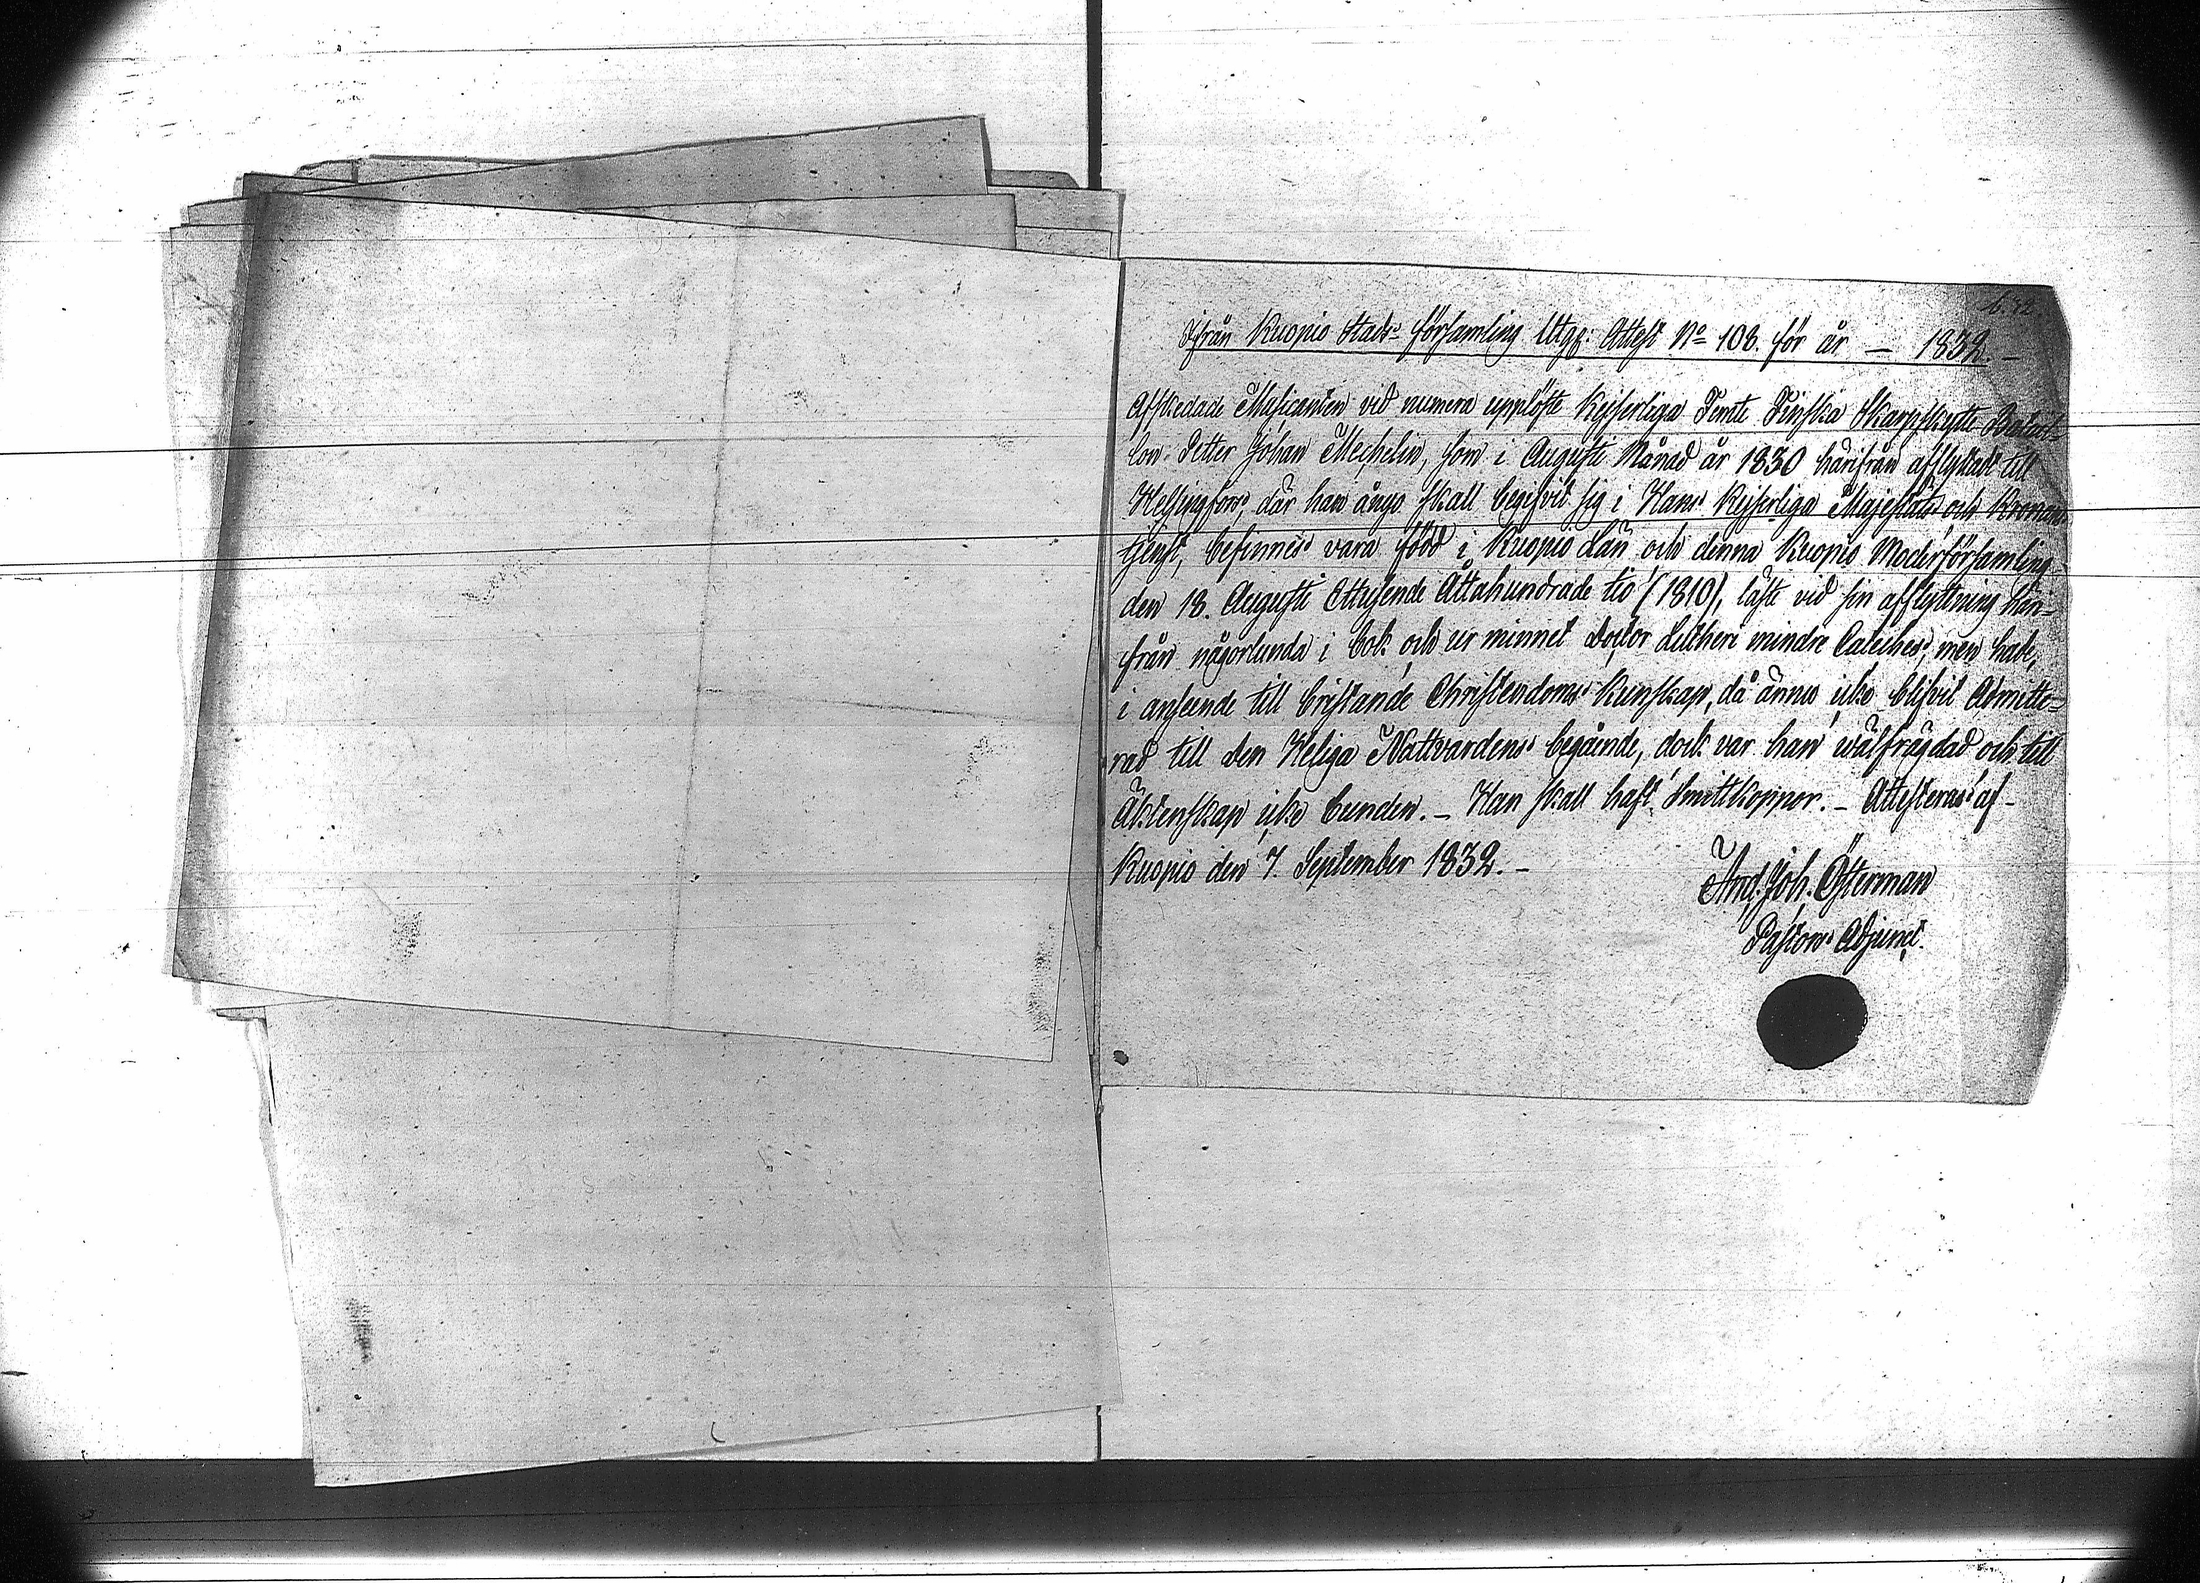 Ifrån Kuopio Stads Församling Utgf: Attest No 108. för år — 1832. —
Afskedade Musicanten vid numera upplöste Kejserliga Femte Finska Skarpskytte Batail-
lon Petter Johan Mechelin, som i Augusti Månad år 1830 härifrån afflyttadt till
Helsingfors, där han ånyo skall begifvit sig i Hans Kejserliga Majestäts och Kronans
tjenst, befinnes vara född i Kuopio Län och denna Kuopio Moderförsamling
den 18. Augusti Ettusende Åttahundrade tio (1810), läste vid sin afflyttning här-
ifrån någorlunda i bok och ur minnet Doctor Lutheri mindre Cateches, men hade,
i anseende till bristande Christendoms Kunskap, då ännu icke blifvit Admitte-
rad till den Heliga Nattvardens begående, dock var han wälfrägdad och till
Äktenskap icke bunden. — Han skall haft Smittkoppor. — Attesteras af —
Kuopio den 7. September 1832. —
And. Joh. Österman
Pastors Adjunct.